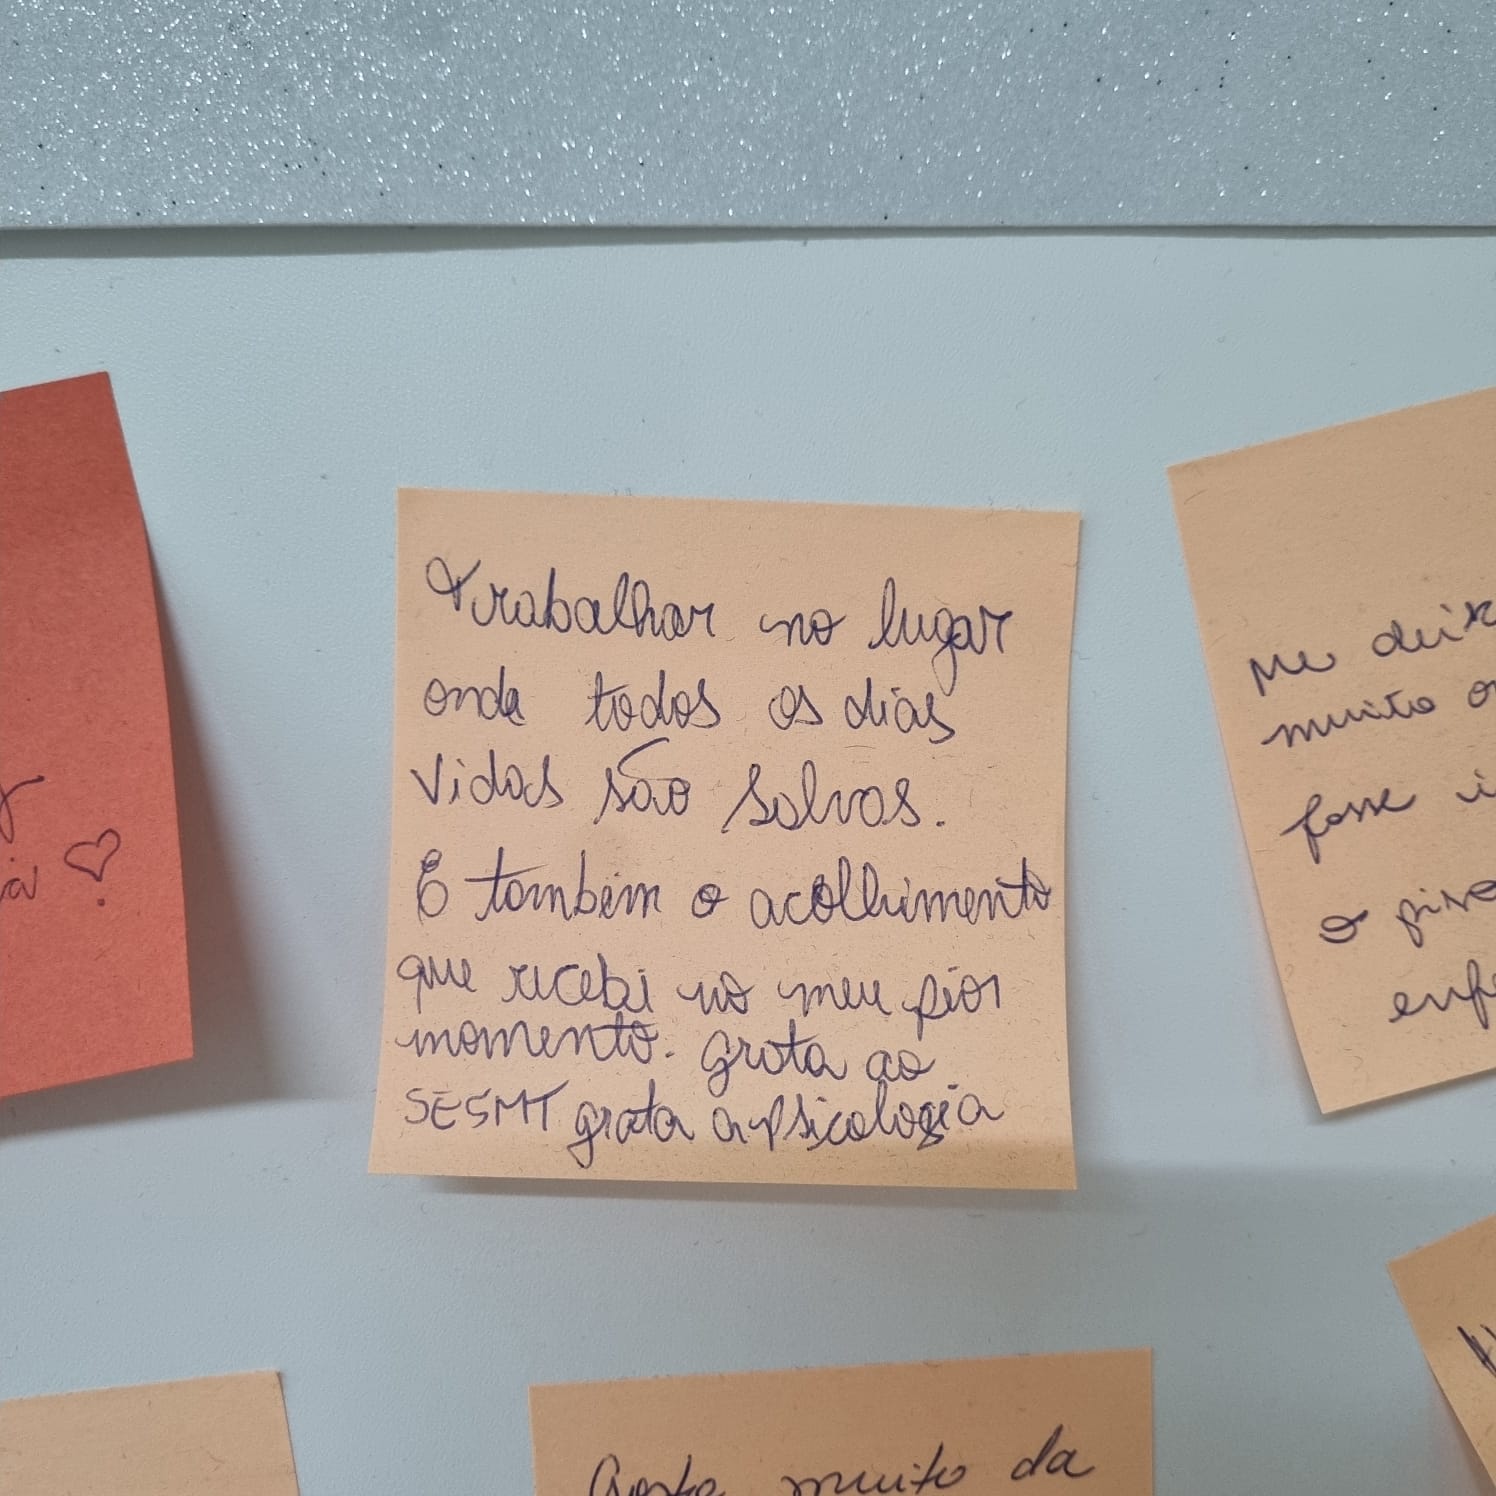 Trabalhar no lugar
onde todos os dias
vidas são salvas.
E também o acolhimento
que recebi no meu pior
momento. grata ao
SESMT grata a psicologia
me deix
muito
fosse i
o pise
enfe
Gosto muito da